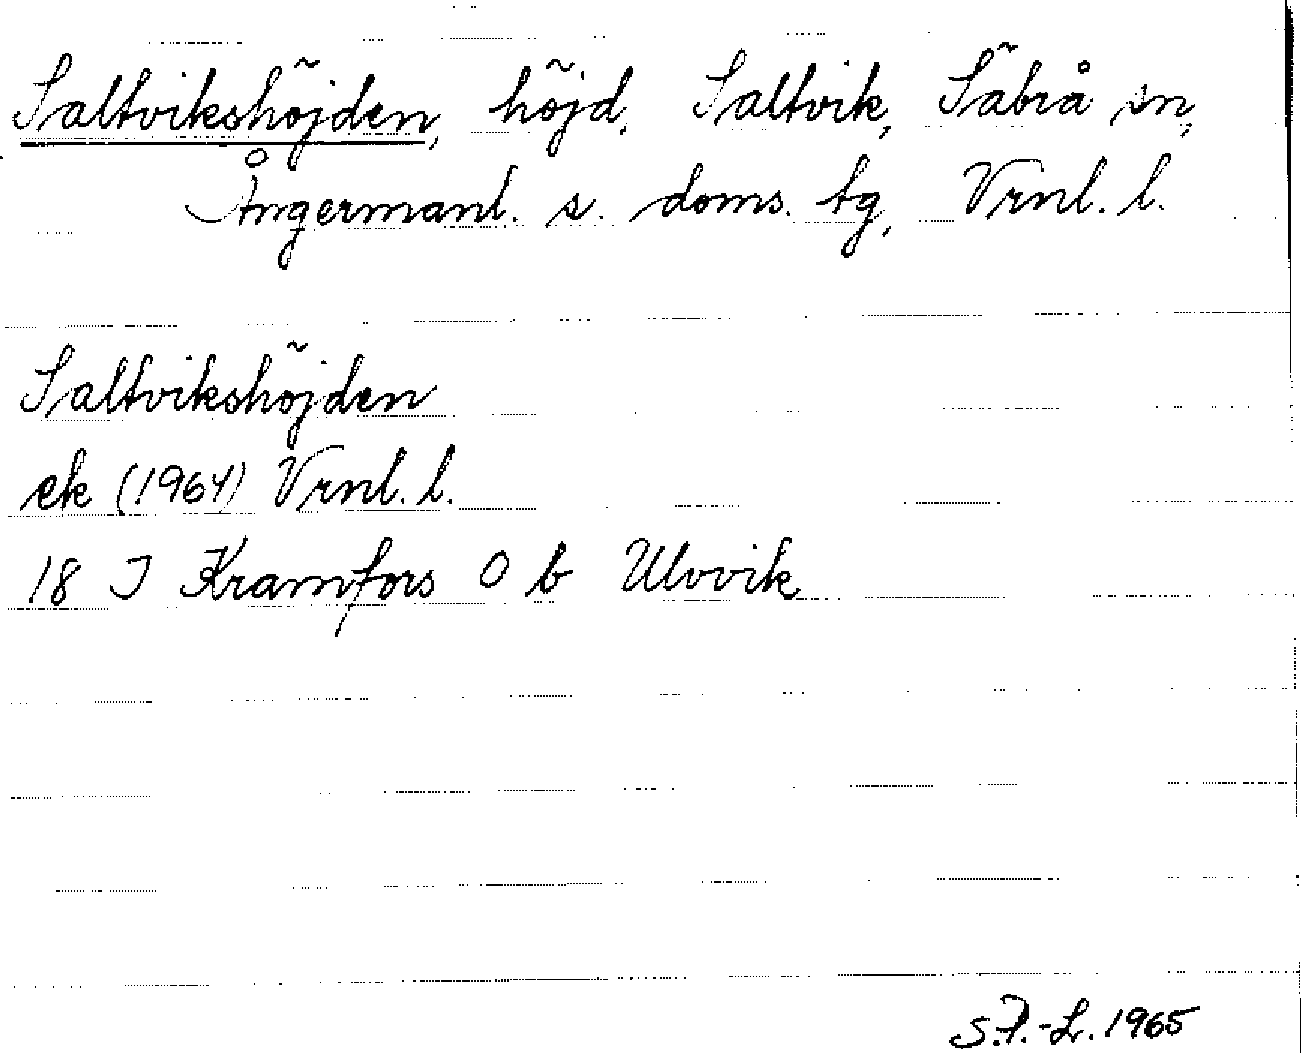 Saltvikshöjden, höjd, Saltvik, Säbrå sn,
Ångermanl. s. doms. tg, Vrnl. l.
Saltvikshöjden
ek (1964) Vrnl. l.
18 I Kramfors O b Ulvvik
S.F.-L. 1965